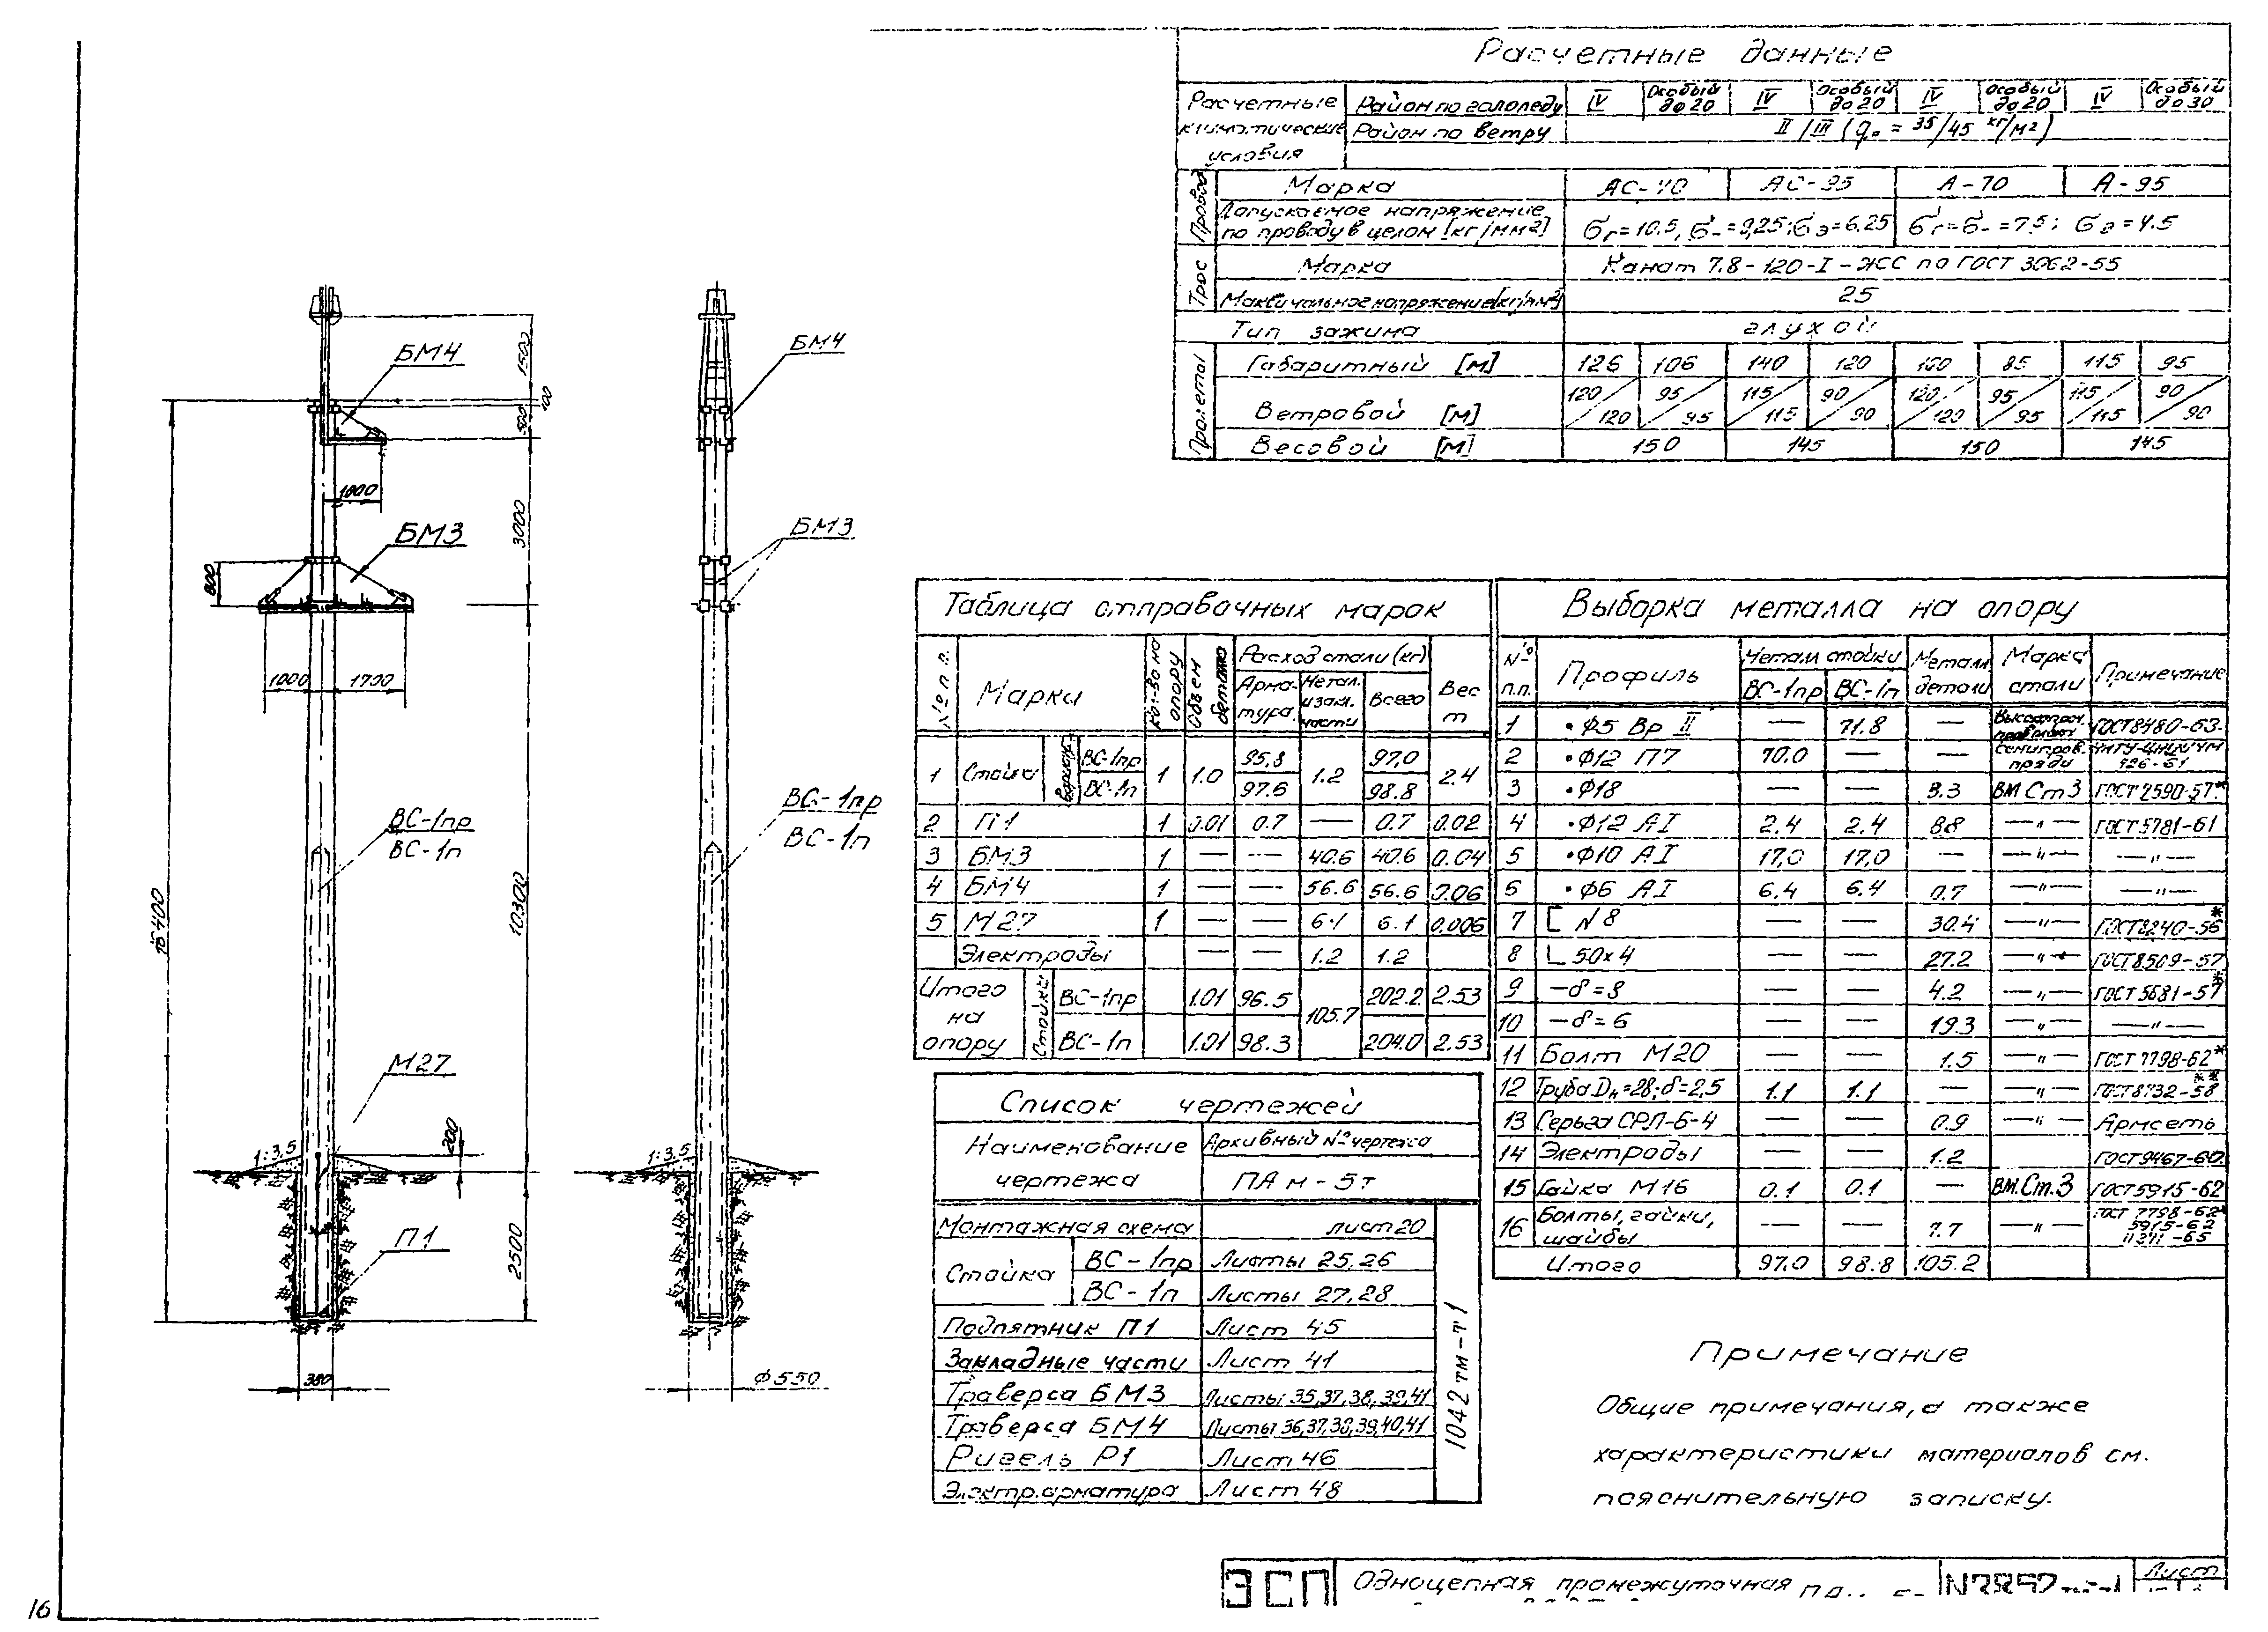 Расчетные данные
Расчетные климатические условия
Район по гололеду IV Особый до 20 IV Особый до 20 IV Особый до 20 IV Особый до 30
Район по ветру II/III (q₀ = 35/45 кг/м²)
Провод
Марка АС-70 АС-95 А-70 А-95
Допускаемое напряжение по проводу в целом [кг/мм²] бг=10.5, б-=9,25; бэ=6.25 бг=б-=7.5; бэ=4.5
Трос
Марка Канат 7.8-120-I-ЖСС по ГОСТ 3062-55
Максимальное напряжение [кг/мм²] 25
Тип зажима глухой
Пролеты
Габаритный [м] 126 106 140 120 100 85 115 95
Ветровой [м] 120/120 95/95 115/115 90/90 120/120 95/95 115/115 90/90
Весовой [м] 150 145 150 145
БМ4
1500
100
500
1000
БМ3
3000
800
1000 1700
ВС-1пр
ВС-1п
10300
М27
200
1:3,5
П1
2500
380
БМ4
БМ3
ВС-1пр
ВС-1п
1:3,5
Ф550
Таблица отправочных марок
№ п п. Марки Кол-во на опору Объем бетона Расход стали (кг) Вес т
Арматура Метал. изакл. части Всего
1 Стойка Вариант ВС-1пр 1 1.0 95,8 1.2 97,0 2.4
ВС-1п 97.6 98.8
2 П1 1 0.01 0.7 — 0.7 0.02
3 БМ3 1 — — 40.6 40.6 0.04
4 БМ4 1 — — 56.6 56.6 0.06
5 М27 1 — — 6.1 6.1 0.006
Электроды — — 1.2 1.2
Итого на опору Стойки ВС-1пр 1.01 96.5 105.7 202.2 2.53
ВС-1п 1.01 98.3 204.0 2.53
Выборка металла на опору
№ п.п. Профиль Металл стойки Металл детали Марка стали Примечание
ВС-1пр ВС-1п
1 • Ф5 Вр II — 71.8 — ГОСТ 8480-63.
2 • Ф12 П7 70.0 — —
3 • Ф18 — — 3.3 ВМ Ст 3 ГОСТ 2590-57*
4 • Ф12 АI 2.4 2.4 8.8 —"— ГОСТ 5781-61
5 • Ф10 АI 17,0 17,0 — —"— —"—
6 • Ф6 АI 6.4 6.4 0.7 —"— —"—
7 [ N 8 — — 30.4 —"— ГОСТ 8240-56*
8 ∟ 50х4 — — 27.2 —"— ГОСТ 8509-57
9 —δ=8 — — 4.2 —"— ГОСТ 5681-57*
10 —δ=6 — — 19.3 —"— —"—
11 Болт М20 — — 1.5 —"— ГОСТ 7798-62*
12 Труба Dн=28; δ=2,5 1.1 1.1 — —"— ГОСТ 8732-58**
13 Серьга СРЛ-Б-4 — — 0.9 —"— Армсеть
14 Электроды — — 1.2 ГОСТ 9467-60.
15 Гайка М16 0.1 0.1 — ВМ.Ст.3 ГОСТ 5915-62
16 Болты, гайки, шайбы — — 7.7 —"— ГОСТ 7798-62* 5915-62 11371-65
Итого 97.0 98.8 105.2
Список чертежей
Наименование чертежа Архивный № чертежа
ПАм-5т
Монтажная схема лист 20
Стойка ВС-1пр Листы 25,26
ВС-1п Листы 27,28
Подпятник П1 Лист 45
Закладные части Лист 41
Траверса БМ3 Листы 35,37,38,39,41
Траверса БМ4 Листы 36,37,38,39,40,41
Ригель Р1 Лист 46
Электр. арматура Лист 48
1042 тм-т1
Примечание
Общие примечания, а также
характеристики материалов см.
пояснительную записку.
ЭСП Одноцепная промежуточная Лист
16